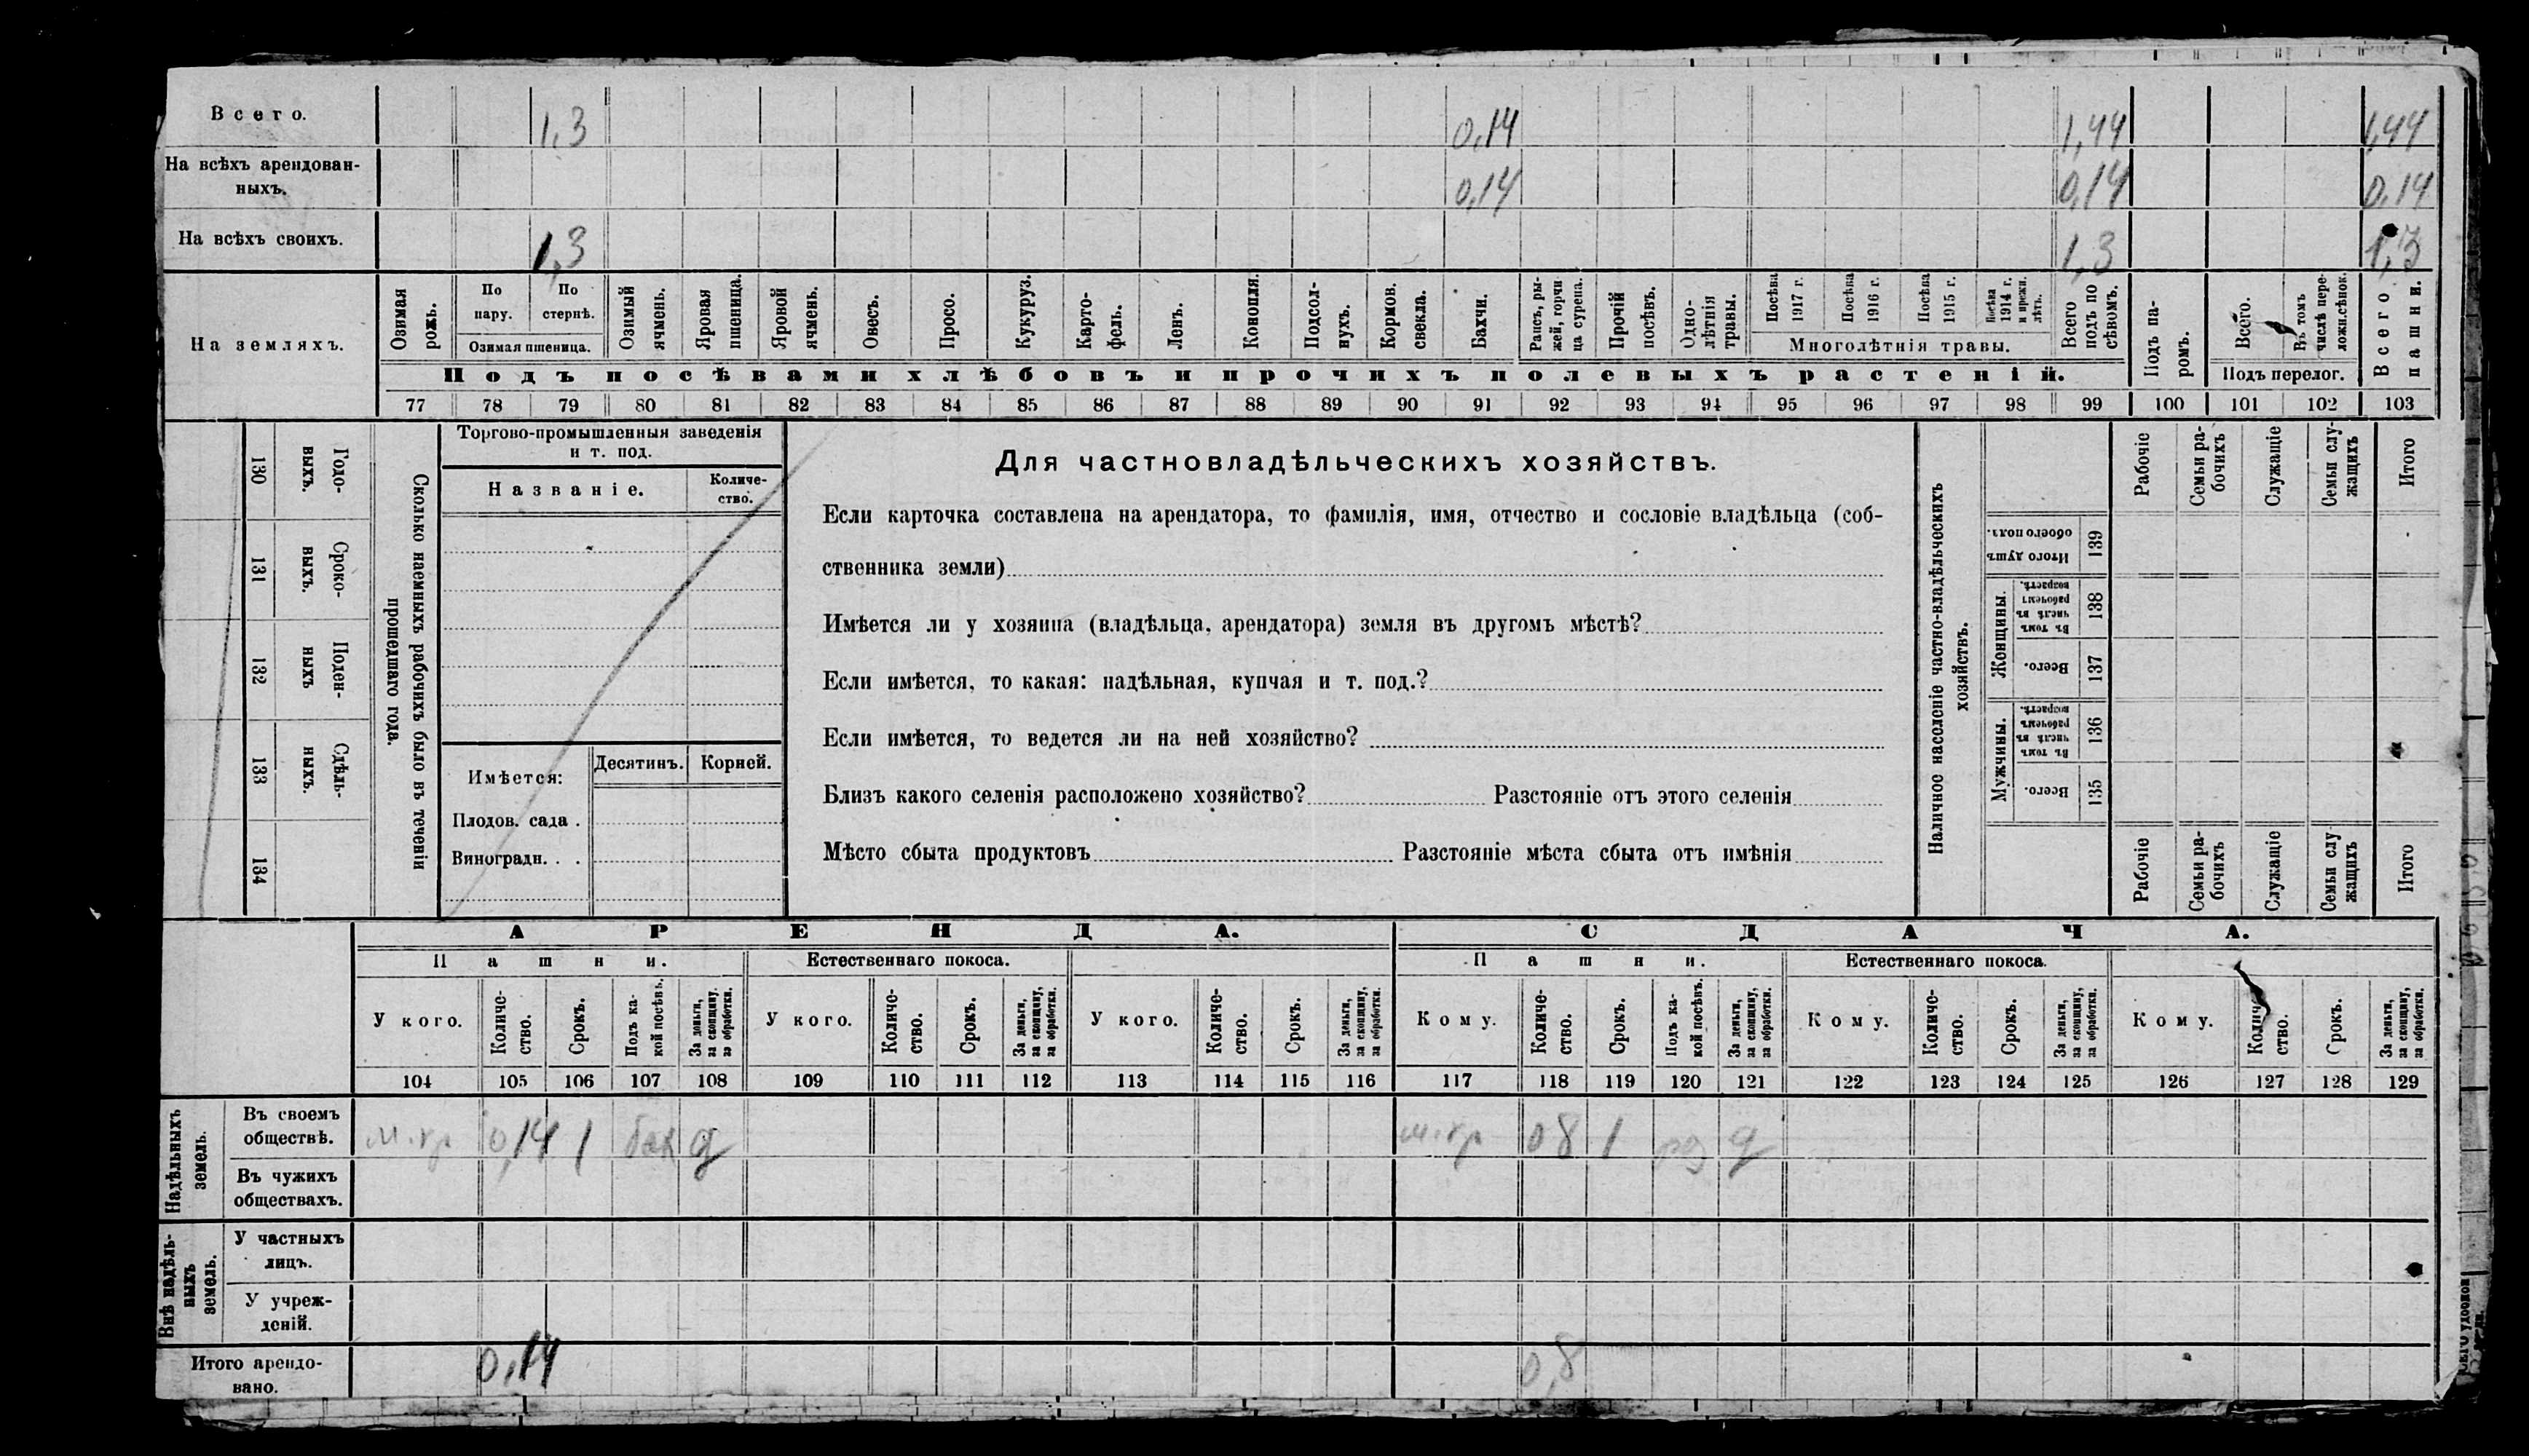 Всего. 1,3 0,14 1,44 1,44
На всѣхъ арендован-
ныхъ. 0,14 0,14 0,14
На всѣхъ своихъ. 1,3 1,3 1,3
На земляхъ.
Озимая рожь.
По пару.
По стернѣ.
Озимая пшеница.
Озимый ячмень.
Яровая пшеница.
Яровой ячмень.
Овесъ.
Просо.
Кукуруз.
Карто-
фель.
Ленъ.
Конопля.
Подсол-
нухъ.
Кормов. свекла.
Бахчи.
Рапсъ, ры-
жей, горчи
ца сурепа.
Прочій посѣвъ.
Одно-
лѣтнія
травы.
Посѣва 1917 г.
Посѣва 1916 г.
Посѣва 1915 г.
Посѣва 1914 г. и прежн. лѣтъ.
Многолѣтнія травы.
Всего подъ по
сѣвомъ.
Подъ па-
ромъ.
Всего.
Въ томъ числѣ пере-
ложн.сѣнок.
Подъ перелог.
Всего пашни.
Подъ посѣвами хлѣбовъ и прочихъ полевыхъ растеній.
77 78 79 80 81 82 83 84 85 86 87 88 89 90 91 92 93 94 95 96 97 98 99 100 101 102 103
130 Годо-
выхъ.
131 Сроко-
выхъ.
132 Поден-
ныхъ
133 Сдѣль-
ныхъ.
134
Сколько наемныхъ рабочихъ было въ теченіи
прошедшаго года.
Торгово-промышленныя заведенія
и т. под.
Названіе.
Количе-
ство.
Имѣется:
Десятинъ.
Корней.
Плодов. сада .
Виноградн. . .
Для частновладѣльческихъ хозяйствъ.
Если карточка составлена на арендатора, то фамилія, имя, отчество и сословіе владѣльца (соб-
ственника земли)
Имѣется ли у хозяина (владѣльца, арендатора) земля въ другомъ мѣстѣ?
Если имѣется, то какая: надѣльная, купчая и т. под.?
Если имѣется, то ведется ли на ней хозяйство?
Близъ какого селенія расположено хозяйство? Разстояніе отъ этого селенія
Мѣсто сбыта продуктовъ Разстояніе мѣста сбыта отъ имѣнія
Наличное населеніе частно-владѣльческихъ
хозяйствъ.
Рабочіе
Семьи ра-
бочихъ
Служащіе
Семьи слу-
жащихъ
Итого
Итого душъ
обоего пола.
139
Женщины.
Въ томъ
числѣ въ
рабочемъ
возрастѣ.
138
Всего.
137
Мужчины.
Въ томъ
числѣ въ
рабочемъ
возрастѣ.
136
Всего.
135
Рабочіе
Семьи ра-
бочихъ
Служащіе
Семьи слу
жащихъ
Итого
АРЕНДА. СДАЧА.
Пашни. Естественнаго покоса. Пашни. Естественнаго покоса.
У кого.
Количе-
ство.
Срокъ.
Подъ ка-
кой посѣвъ.
За деньги,
за скопщину,
за обработки.
У кого.
Количе-
ство.
Срокъ.
За деньги,
за скопщину,
за обработки.
У кого.
Количе-
ство.
Срокъ.
За деньги,
за скопщину,
за обработки.
Кому.
Количе-
ство.
Срокъ.
Подъ ка-
кой посѣвъ.
За деньги,
за скопщину,
за обработки.
Кому.
Количе-
ство.
Срокъ.
За деньги,
за скопщину,
за обработки.
Кому.
Количе-
ство.
Срокъ.
За деньги,
за скопщину,
за обработки.
104 105 106 107 108 109 110 111 112 113 114 115 116 117 118 119 120 121 122 123 124 125 126 127 128 129
Надѣльныхъ
земель.
Въ своемъ
обществѣ. 0,14 1 бах д 08 1 д
Въ чужихъ
обществахъ.
Внѣ надѣль-
ныхъ
земель.
У частныхъ
лицъ.
У учреж-
деній.
Итого арендо-
вано. 0,14 0,8